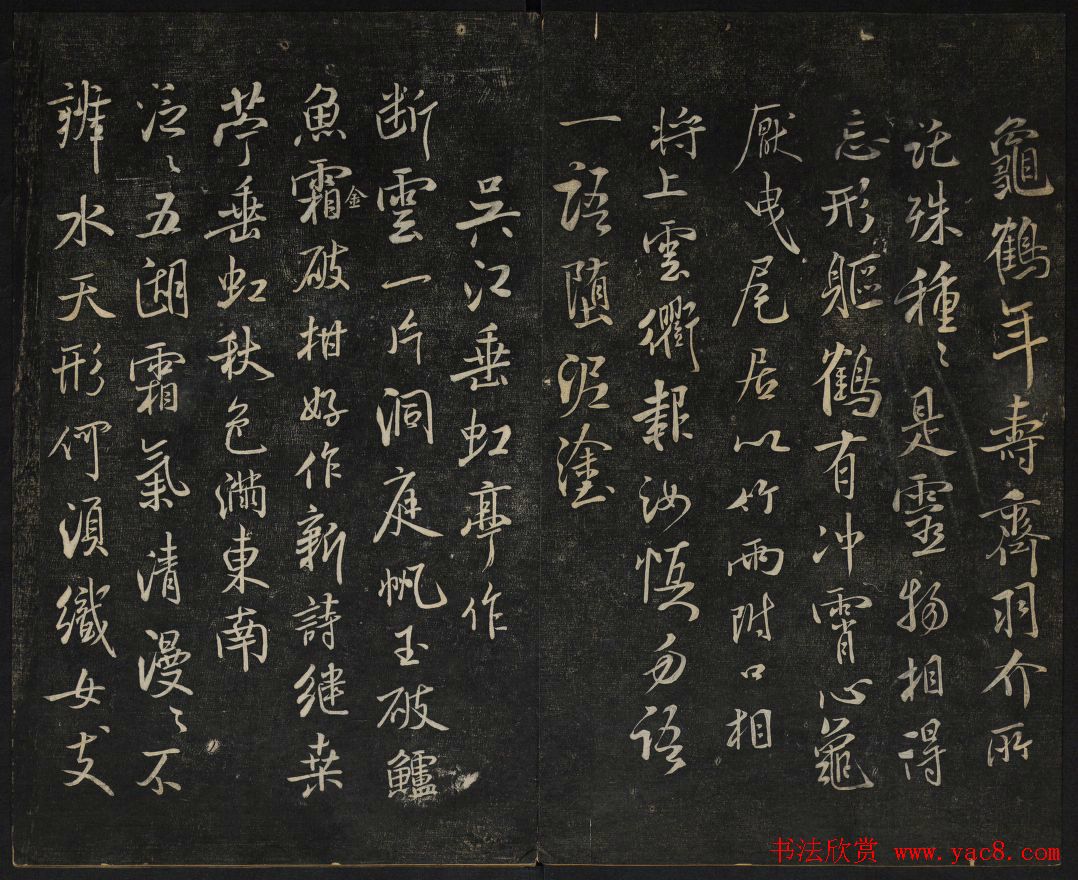 龜鶴年壽齊羽介所
託殊種〻是靈物相得
忘形軀鶴有冲霄心龜
厭曳尾居以竹兩附口相
將上雲衢報汝慎勿語
一語墮泥塗
吳江垂虹亭作
断雲一片洞庭帆玉破鱸
魚霜金破柑好作新詩継桒
苧垂虹秋色滿東南
泛〻五湖霜氣清漫〻不
辨水天形何須織女支
书法欣赏 www.yac8.com